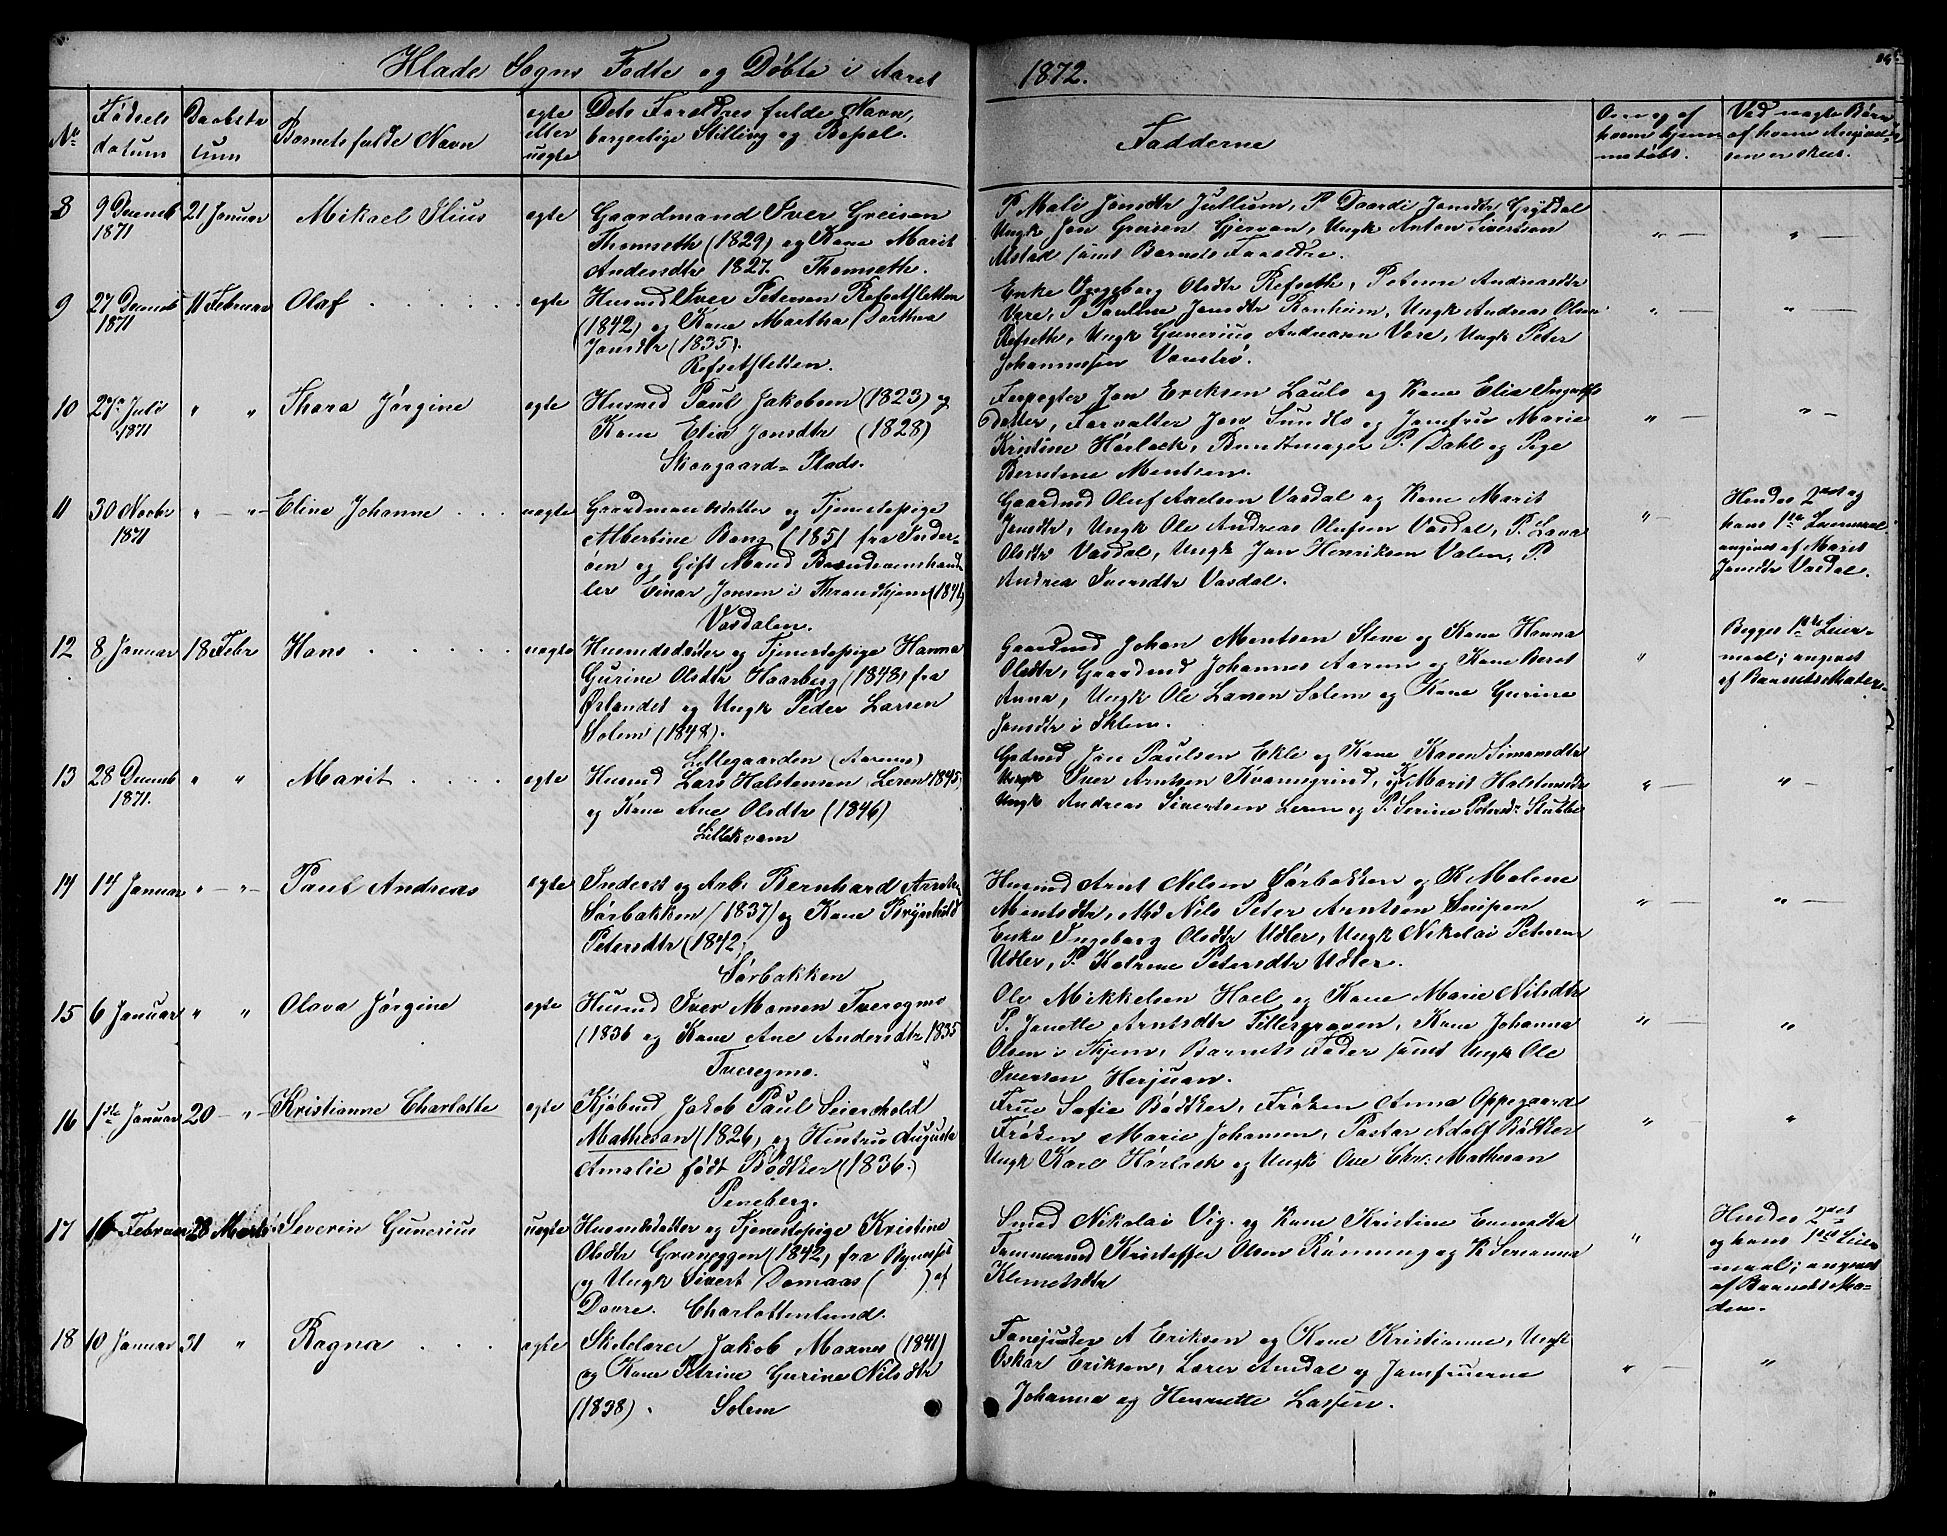 Hlade Sogns Fødte og Døbte i Aaret 1872.
No
Fødsels datum
Daabsda tum
Barnets fulde Navn
egte eller uegte
Dets Forældres fulde Navn, borgerlige Stilling og Bopel.
Fadderne
Om og af hvem hjemmedøbt.
Ved uegte Børn af hvem Angivelsen er skeet.
8 9 Decemb 1871 21 Januar Mikael Ilius egte
Gaardmand Iver Greisen
Thomseth (1829) og Kone Marit
Andersdtr 1827. Thomseth.
P. Mali Jonsdtr Jullum, P. Daardi Jonsdtr
Ungk Jon Greisen Gjervan, Ungk Anton Sivertsen
Alstad samt Barnets Forældre.
" — " —
9 27 Decemb 1871 11 Februar Olaf egte
Husmd Iver Petersen Refsetsletten
(1842) og Kone Martha Dorthea
Jonsdtr (1835).
Refsetsletten.
Enke Ingeborg Olsdtr Refseth, Peterne Andreasdtr
Være, P. Pauline Jonsdtr Ranheim, Ungk Andreas Olsen
Refseth, Ungk Gunerius Andreasen Være, Ungk Peter
Johannessen
" — " —
10 27de Juli 1871 " " Thora Jørgine egte
Husmd Paul Jakobsen (1823) og
Kone Elen Jonsdtr (1828)
Skovgaard-Plads.
Forpagter Jon Eriksen Laulo og Kone Elia Ingerts
datter, Forvalter Jon Sundlo og Jomfru Marie
Kristine Hørlock, Buntmager P. Dahl og Pige
Berntine Mentsen.
" — " —
11 30 Novbr 1871 " — " Eline Johanne uegte
Gaardmandsdatter og Tjenestepige
Albertine Bang (1851 fra Inder-
øen og Gift Mand Brændevinshand
ler Einar Jonsen i Throndhjem (1841)
Vasdalen.
Gaardmd Oluf Axelsen Vasdal og Kone Marit
Jonsdtr, Ungk Ole Andreas Olufsen Vasdal, P. Lava
Olsdtr Vasdal, Ungk Jon Henriksen Valen, P.
Andrea Iversdtr Vasdal.
" —
Hendes 2det og
hans 1ste Leiermaal
angivet af Marit
Jonsdtr Vasdal.
12 8 Januar 18 Febr Hans uegte
Husmdsdatter og Tjenestepige Hanna
Gurine Olsdtr Haarberg (1848) fra
Ørlandet og Ungk Peder Larsen
Solem (1848).
Lillegaarden (Aarenes)
Gaardmd Johan Mentsen Stene og Kone Hanna
Olsdtr, Gaardmd Johannes Aarnes og Kone Beret
Anna, Ungk Ole Larsen Solem og Kone Gurine
Jonsdtr i
"
Begges 1ste Leier-
maal; angivet
af Barnets Moder.
13 28 Decemb 1871. " " Marit egte
Husmd Lars Halstensen Leren 1845)
og Kone Ane Olsdtr (1846)
Lillekvam
Gdmd Jøns Paulsen Ekle og Kone Karen Simonsdtr
Ungk Iver Arntsen Kvamsgrind, og K Marit Halstensdtr
Ungk Andreas Sivertsen Leren og P. Serine Petersdtr Stubbe
" — " —
14 14 Januar " — " Paul Andreas egte
Inderst og Arb. Bernhard Arnts.
Sørbakken (1837) og Kone Brynhild
Petersdtr (1842)
Sørbakken
Husmd Arnt Nilsen Sørbakken og K Malene
Mentsdtr, Md Nils Peter Arntsen Snipen
Enke Ingeborg Olsdtr Udler, Ungk Nikolai Petersen
Udler, P. Katrine Petersdtr Udler.
" — " —
15 6 Januar " " Olava Jørgine egte
Husmd Iver Monsen Tveregmo
(1836 og Kone Ane Andersdtr 1835
Tveregmo.
Ole Mikkelsen Hoel og Kone Marie Nilsdtr
P. Janette Arntsdtr Tillergraven, Kone Johanna
Olsen i Skjem, Barnets Fader samt Ungk Ole
Iversen Herjuan.
" — "
16 1ste Januar 20 — " Kristianne Charlotte egte
Kjøbmd Jakob Paul Seierskold
Matheson (1826) og Hustru Augusta
Amalie født Bødtker (1836.)
Peneberg.
Frue Sofie Bødtker, Frøken Anna Oppegaard
Frøken Marie Johansen, Pastor Adolf Bødtker
Ungk Karl Hørlock og Ungk Ove Chr. Matheson
" — "
17 16 Februar 28 Marts Severin Gunerius uegte
Husmdsdatter og Tjenestepige Kristine
Olsdtr Graneggen (1842) fra Bynesset
og Ungk Sivert Domaas ( ) af
Dovre. Charlottenlund.
Smed Nikolai Vig. og Kone Kristine Evensdtr
Tømmermd Kristoffer Olsen Rønning og K Serianna
Klemetsdtr
"
Hendes 2det
og hans 1ste Leier
maal; angivet
af Barnets Mo-
der.
18 10 Januar 31 " Ragna egte
Skolelærer Jakob Moxnes (1841)
og Kone Petrine Gurine Nilsdtr
(1838). Solem
Fanejunker A Eriksen og Kone Kristianne, Ungk
Oskar Eriksen, Lærer Amdal og Jomfruerne
Johanna og Henriette Lassen.
" — "